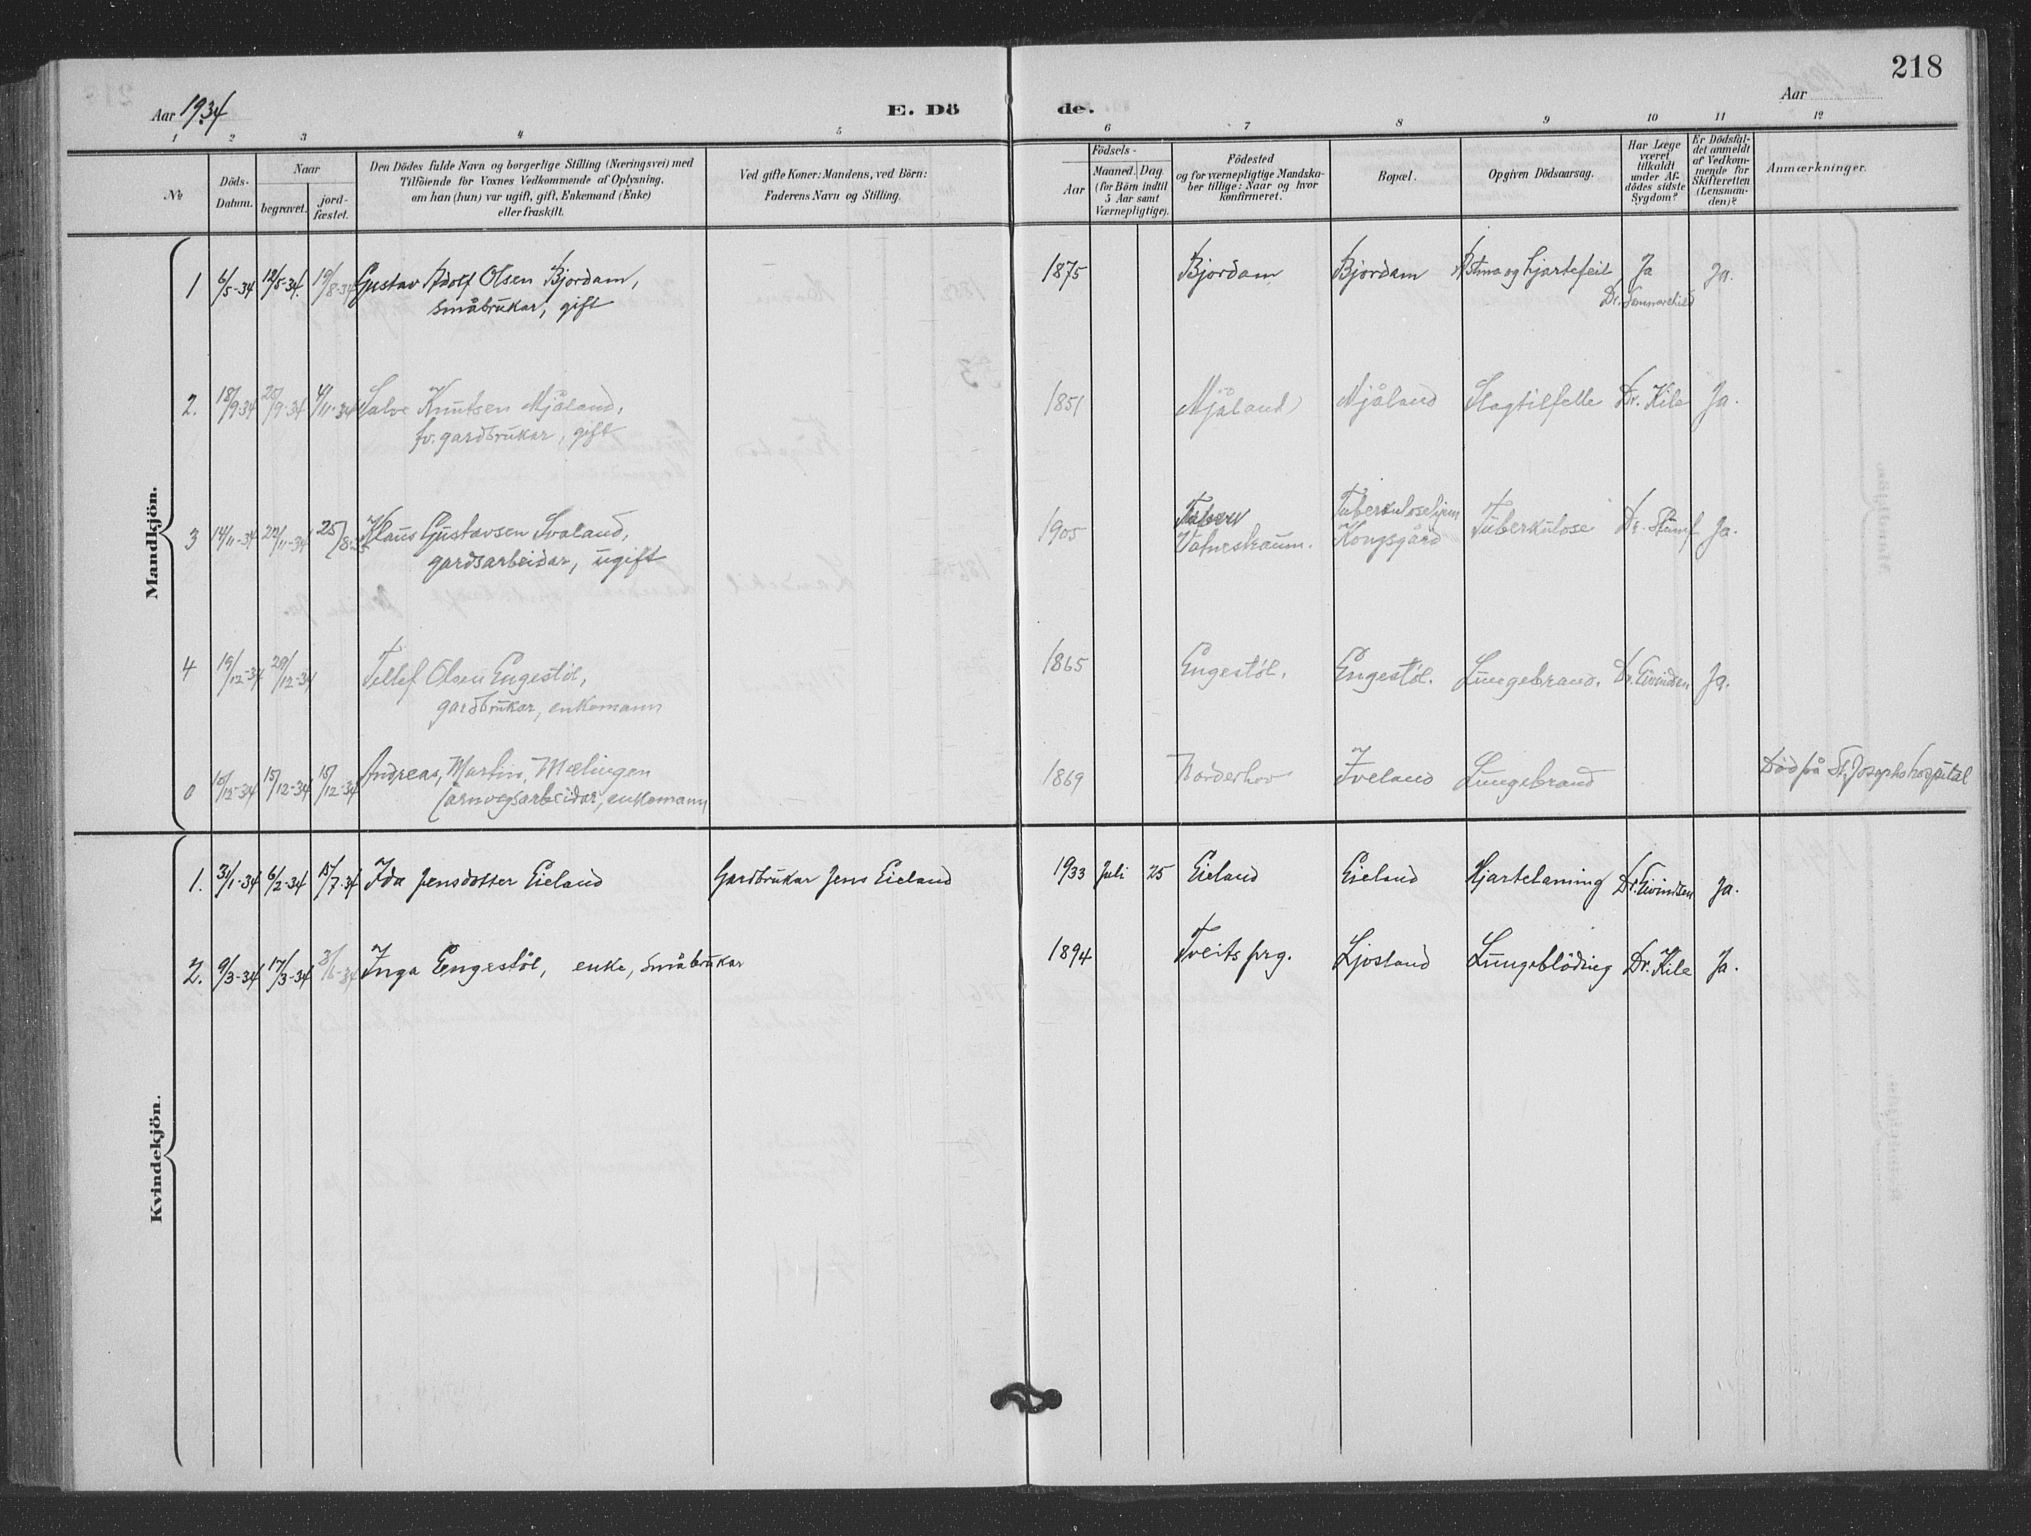 218
Aar 1934
E. Döde.
Aar
1 2 3 4 5 6 7 8 9 10 11 12
No
Döds-Datum.
Naar
begravet.
jord-fæstet.
Den Dödes fulde Navn og borgerlige Stilling (Næringsvei) med
Tilföiende for Voxnes Vedkommende af Oplysning,
om han (hun) var ugift, gift, Enkemand (Enke)
eller fraskilt.
Ved gifte Koner: Mandens, ved Börn:
Faderens Navn og Stilling.
Födsels-
Aar
Maaned. Dag.
(for Börn indtil
5 Aar samt
Værnepligtige).
Födested
og for værnepligtige Mandska-
ber tillige: Naar og hvor
konfirmeret.
Bopæl.
Opgiven Dödsaarsag.
Har Læge
været
tilkaldt
under Af-
dödes sidste
Sygdom?
Er Dödsfal-
det anmeldt
af Vedkom-
mende for
Skifteretten
(Lensman-
den)?
Anmærkninger.
Mandkjön.
1 6/5-34 12/5-34. 19/8-34 Gustav Adolf Olsen Bjordam, 1875 Bjordam Bjordam Astma og hjartefeil Ja Ja.
småbrukar, gift Dr.
2. 18/9 34 25/9-34 4/11-34 Salve Knutsen Mjåland, 1851 Mjåland Mjåland Slagtilfelle Dr. Kile Ja.
fv. gardbrukar, gift
3 14/11-34 22/11-34 25/8-35 Klaus Gustavsen Svaland, 1905 Vatnestraum. Tuberkuloseheim Kongsgård Tuberkulose Dr. Ja.
gardsarbeidar, ugift
4 19/12-34 29/12-34 Tellef Olsen Engestöl, 1865 Engestöl. Engestöl. Lungebrand. Dr. Eivindsen Ja.
gardbrukar, enkemann
0 15/12-34 15/12-34 Andreas, Martin, Mælingen 1869 Norderhov Iveland Lungebrand Död på St. Josephs hospital
jarnvegsarbeidar, enkemann
Kvindekjön.
1. 31/1-34 6/2-34 15/7-34 Ida Jensdotter Eieland Gardbrukar Jens Eieland 1933 Juli 25 Eieland Eieland Hjartelaming Dr. Eivindsen Ja.
2. 9/3-34 17/3-34 Inga Engestöl, enke, småbrukar 1894 Tveits prg. Ljosland Lungeblöding Dr. Kile Ja.